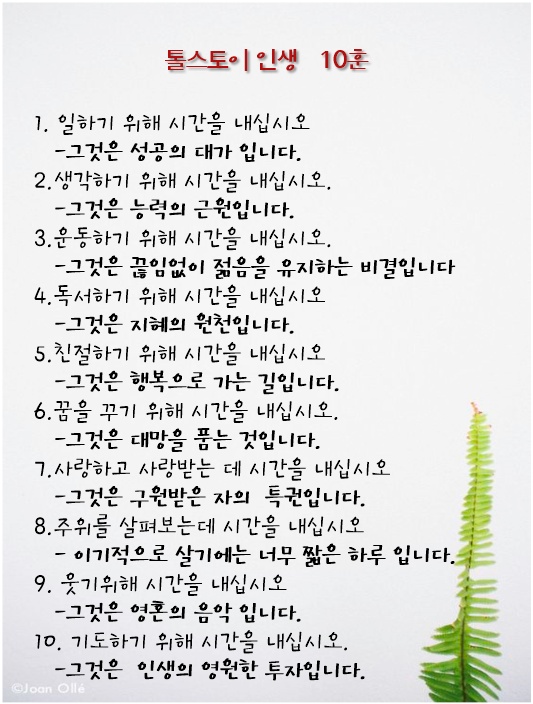 톨스토이 인생 10훈
1. 일하기 위해 시간을 내십시오
-그것은 성공의 대가 입니다.
2.생각하기 위해 시간을 내십시오.
-그것은 능력의 근원입니다.
3.운동하기 위해 시간을 내십시오.
-그것은 끊임없이 젊음을 유지하는 비결입니다
4.독서하기 위해 시간을 내십시오
-그것은 지혜의 원천입니다.
5.친절하기 위해 시간을 내십시오
-그것은 행복으로 가는 길입니다.
6.꿈을 꾸기 위해 시간을 내십시오.
-그것은 대망을 품는 것입니다.
7.사랑하고 사랑받는 데 시간을 내십시오
-그것은 구원받은 자의 특권입니다.
8.주위를 살펴보는데 시간을 내십시오
- 이기적으로 살기에는 너무 짧은 하루 입니다.
9. 웃기위해 시간을 내십시오
-그것은 영혼의 음악 입니다.
10. 기도하기 위해 시간을 내십시오.
-그것은 인생의 영원한 투자입니다.
©Joan Ollé